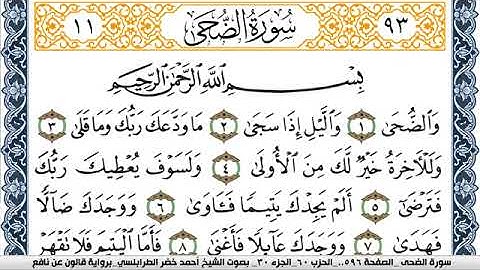 ٩٣ سُورَةُ الضُّحَى ١١
بِسْمِ اللَّهِ الرَّحْمَٰنِ الرَّحِيمِ
وَالضُّحَىٰ ١ وَالَّيْلِ إِذَا سَجَىٰ ٢ مَا وَدَّعَكَ رَبُّكَ وَمَا قَلَىٰ ٣
وَلَلْأَخِرَةُ خَيْرٌ لَّكَ مِنَ الْأُولَىٰ ٤ وَلَسَوْفَ يُعْطِيكَ رَبُّكَ
فَتَرْضَىٰ ٥ أَلَمْ يَجِدْكَ يَتِيمًا فَـَٔاوَىٰ ٦ وَوَجَدَكَ ضَالًّا
فَهَدَىٰ ٧ وَوَجَدَكَ عَآئِلًا فَأَغْنَىٰ ٨ فَأَمَّا الْيَتِيمَ فَلَا تَقْهَرْ
سورة الضحى _الصفحة ٥٩٦..الحزب ٦٠_الجزء ٣٠_ بصوت الشيخ أحمد خضر الطرابلسي_برواية قالون عن نافع